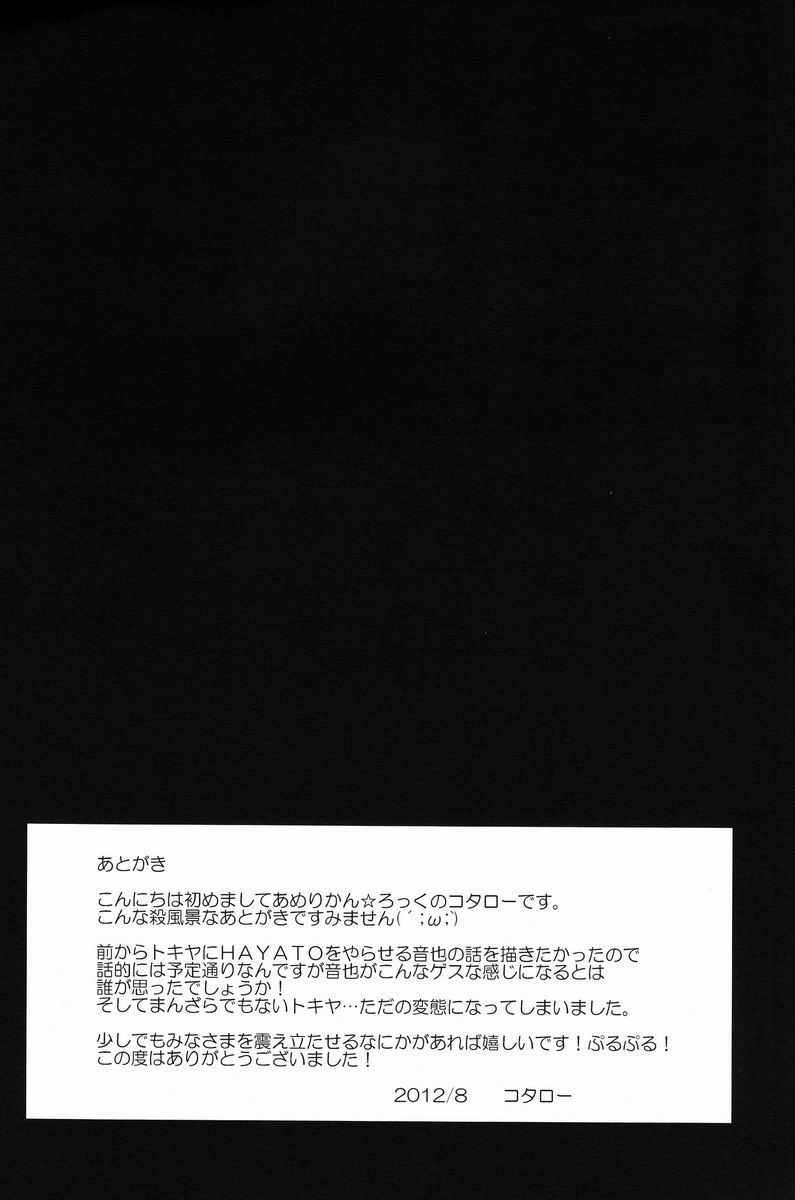 あとがき
こんにちは初めましてあめりかん☆ろっくのコタローです。
こんな殺風景なあとがきですみません(´;ω;`)
前からトキヤにHAYATOをやらせる音也の話を描きたかったので
話的には予定通りなんですが音也がこんなゲスな感じになるとは
誰が思ったでしょうか！
そしてまんざらでもないトキヤ…ただの変態になってしまいました。
少しでもみなさまを震え立たせるなにかがあれば嬉しいです！ぷるぷる！
この度はありがとうございました！
2012/8　コタロー